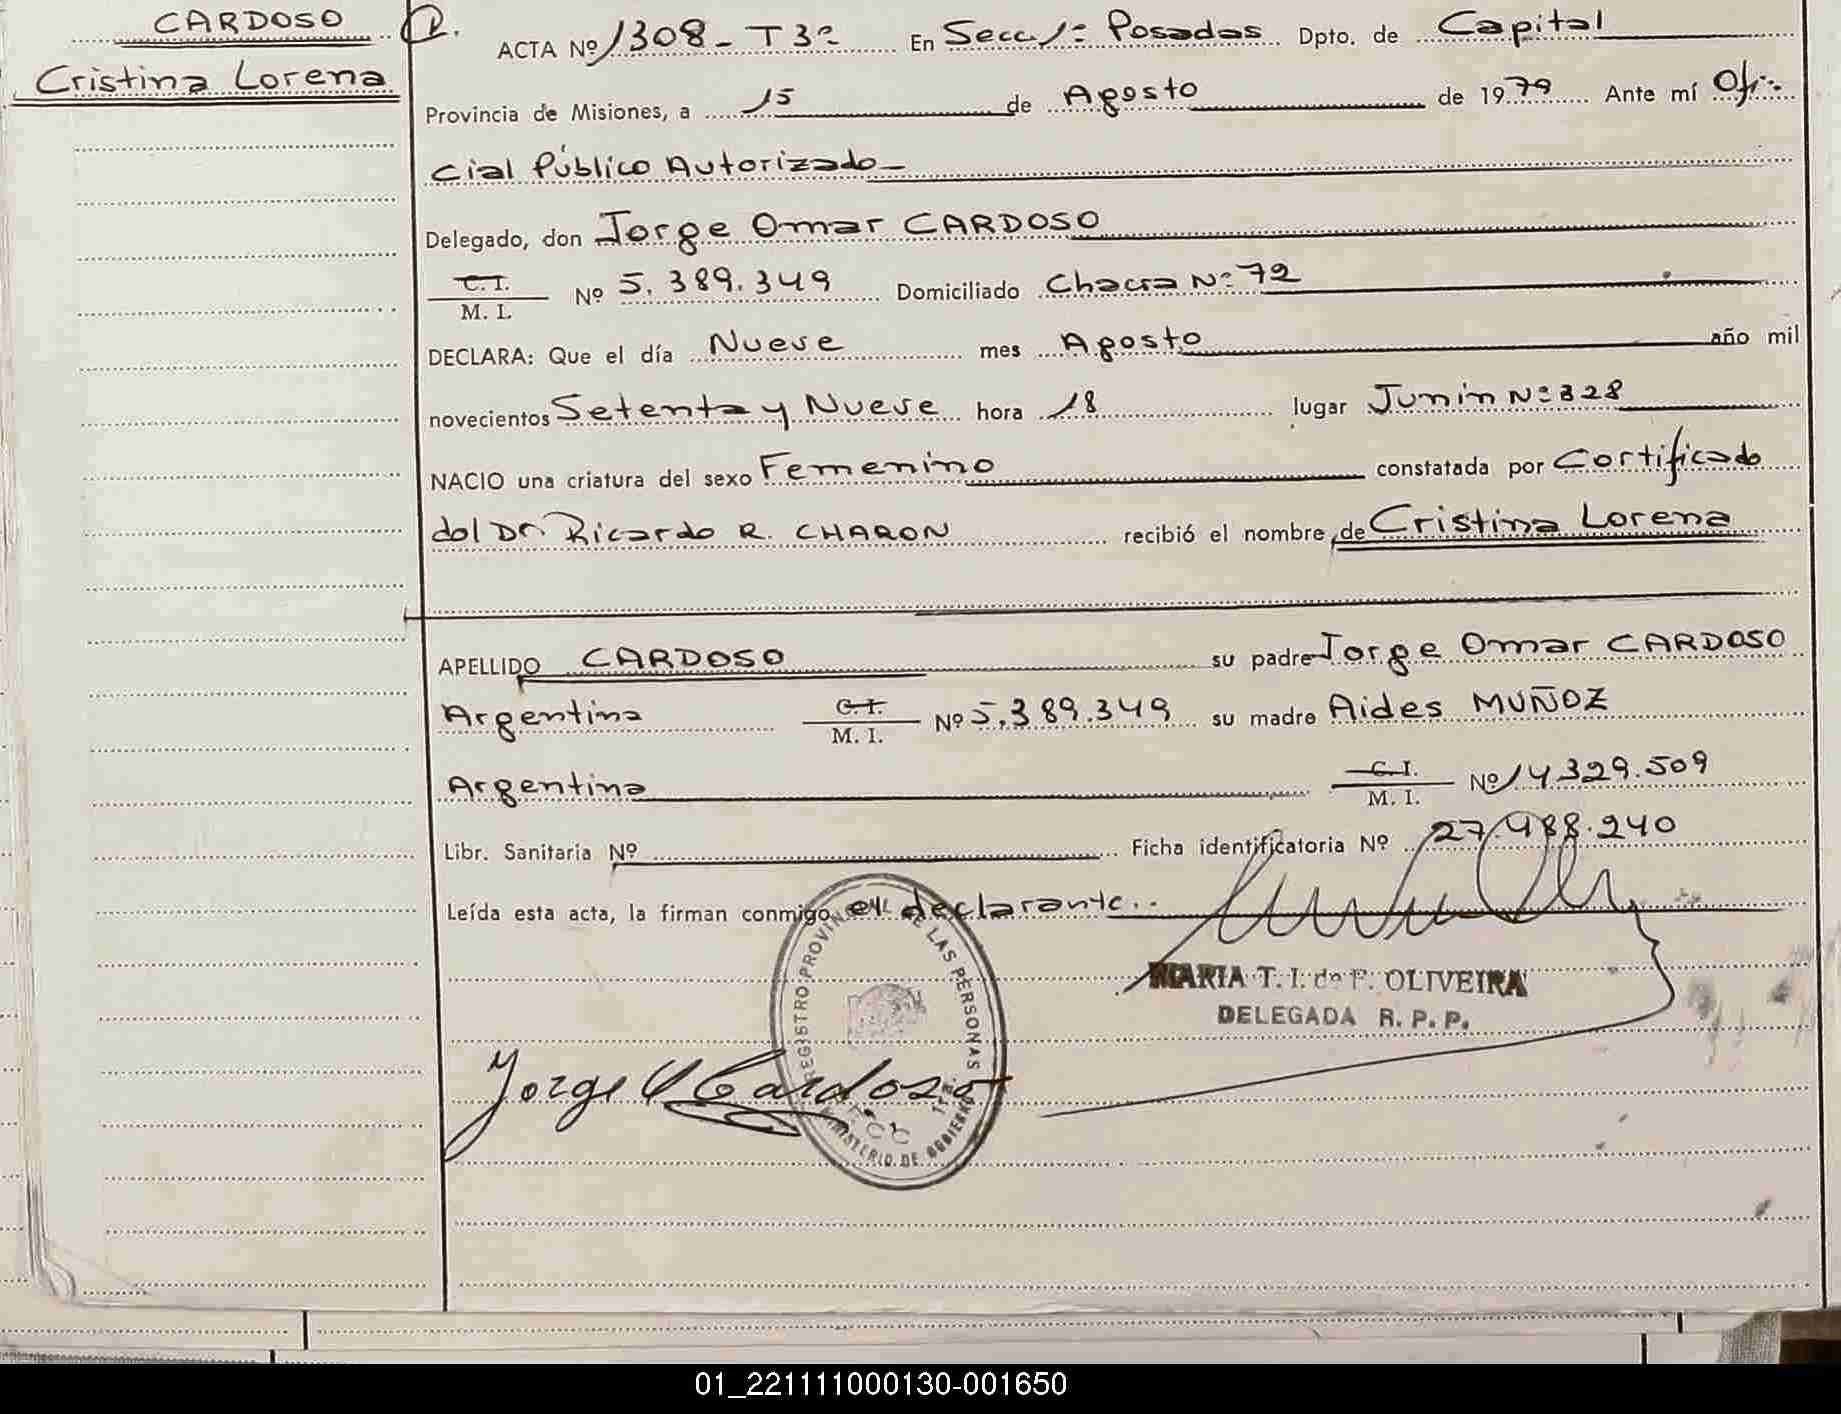 CARDOSO
Cristina Lorena
ACTA Nº 1308-T3º En Secc 1ª Posadas Dpto. de Capital
Provincia de Misiones, a 15 de Agosto de 1979 Ante mí Ofi-
cial Público Autorizado-
Delegado, don Jorge Omar CARDOSO
C. I.
M. I. Nº 5.389.349 Domiciliado Chacra Nº 72
DECLARA: Que el día Nueve mes Agosto año mil
novecientos Setenta y Nueve hora 18 lugar Junin Nº 328
NACIO una criatura del sexo Femenino constatada por Certificado
del Dr. Ricardo R. CHARON recibió el nombre de Cristina Lorena
APELLIDO CARDOSO su padre Jorge Omar CARDOSO
Argentina C. I. M. I. Nº 5.389.349 su madre Aides MUÑOZ
Argentina C. I. M. I. Nº 14329.509
Libr. Sanitaria Nº Ficha identificatoria Nº 27.488.240
Leída esta acta, la firman conmigo el declarante..
REGISTRO PROVINCIAL DE LAS PERSONAS
SECC 1ra.
MINISTERIO DE GOBIERNO
MARIA T. I. de F. OLIVEIRA
DELEGADA R. P. P.
Jorge O Cardoso
01_221111000130-001650